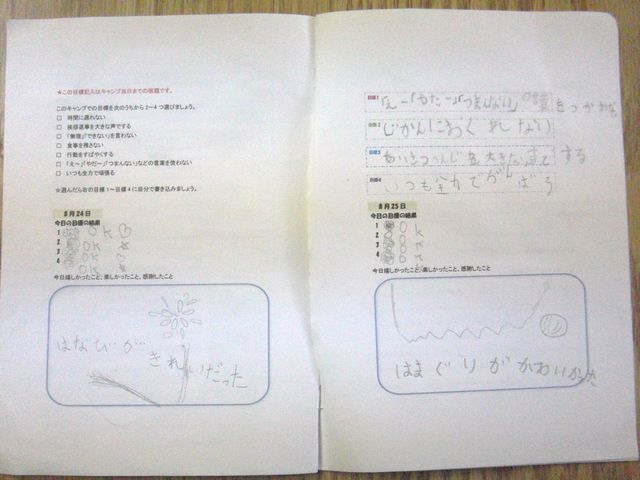 ★この目標記入はキャンプ当日までの宿題です。
このキャンプでの目標を次のうちから2〜4つ選びましょう。
□ 時間に遅れない
□ 挨拶返事を大きな声でする
□ 「無理」「できない」を言わない
□ 食事を残さない
□ 行動をすばやくする
□ 「え〜」「やだ〜」「つまんない」などの言葉を使わない
□ いつも全力で頑張る
★選んだら右の目標1〜目標4に自分で書き込みましょう。
8月24日
今日の目標の結果
1 OK
2 OK
3 OK
4 OK
今日嬉しかったこと、楽しかったこと、感謝したこと
はなびが
きれいだった
目標1 「え〜」「やだ〜」「つまんない」
目標2 じかんにおくれない
目標3 あいさつへんじを大きな声でする
目標4 いつも全力でがんばる
8月25日
今日の目標の結果
1 OK
2 OK
3 OK
4 OK
今日嬉しかったこと、楽しかったこと、感謝したこと
はまぐりがかわいかった